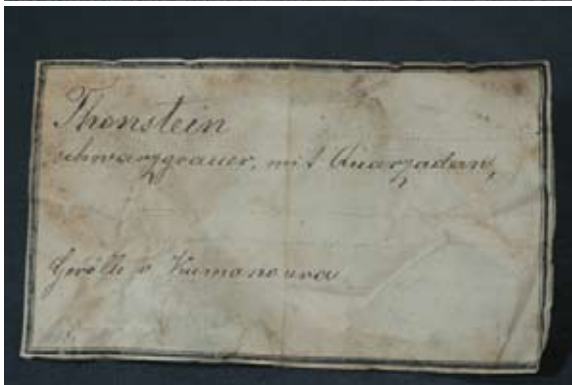 Thonstein
schwarzgrauer, mit Quarzadern,
Gerölle v Kumanoura